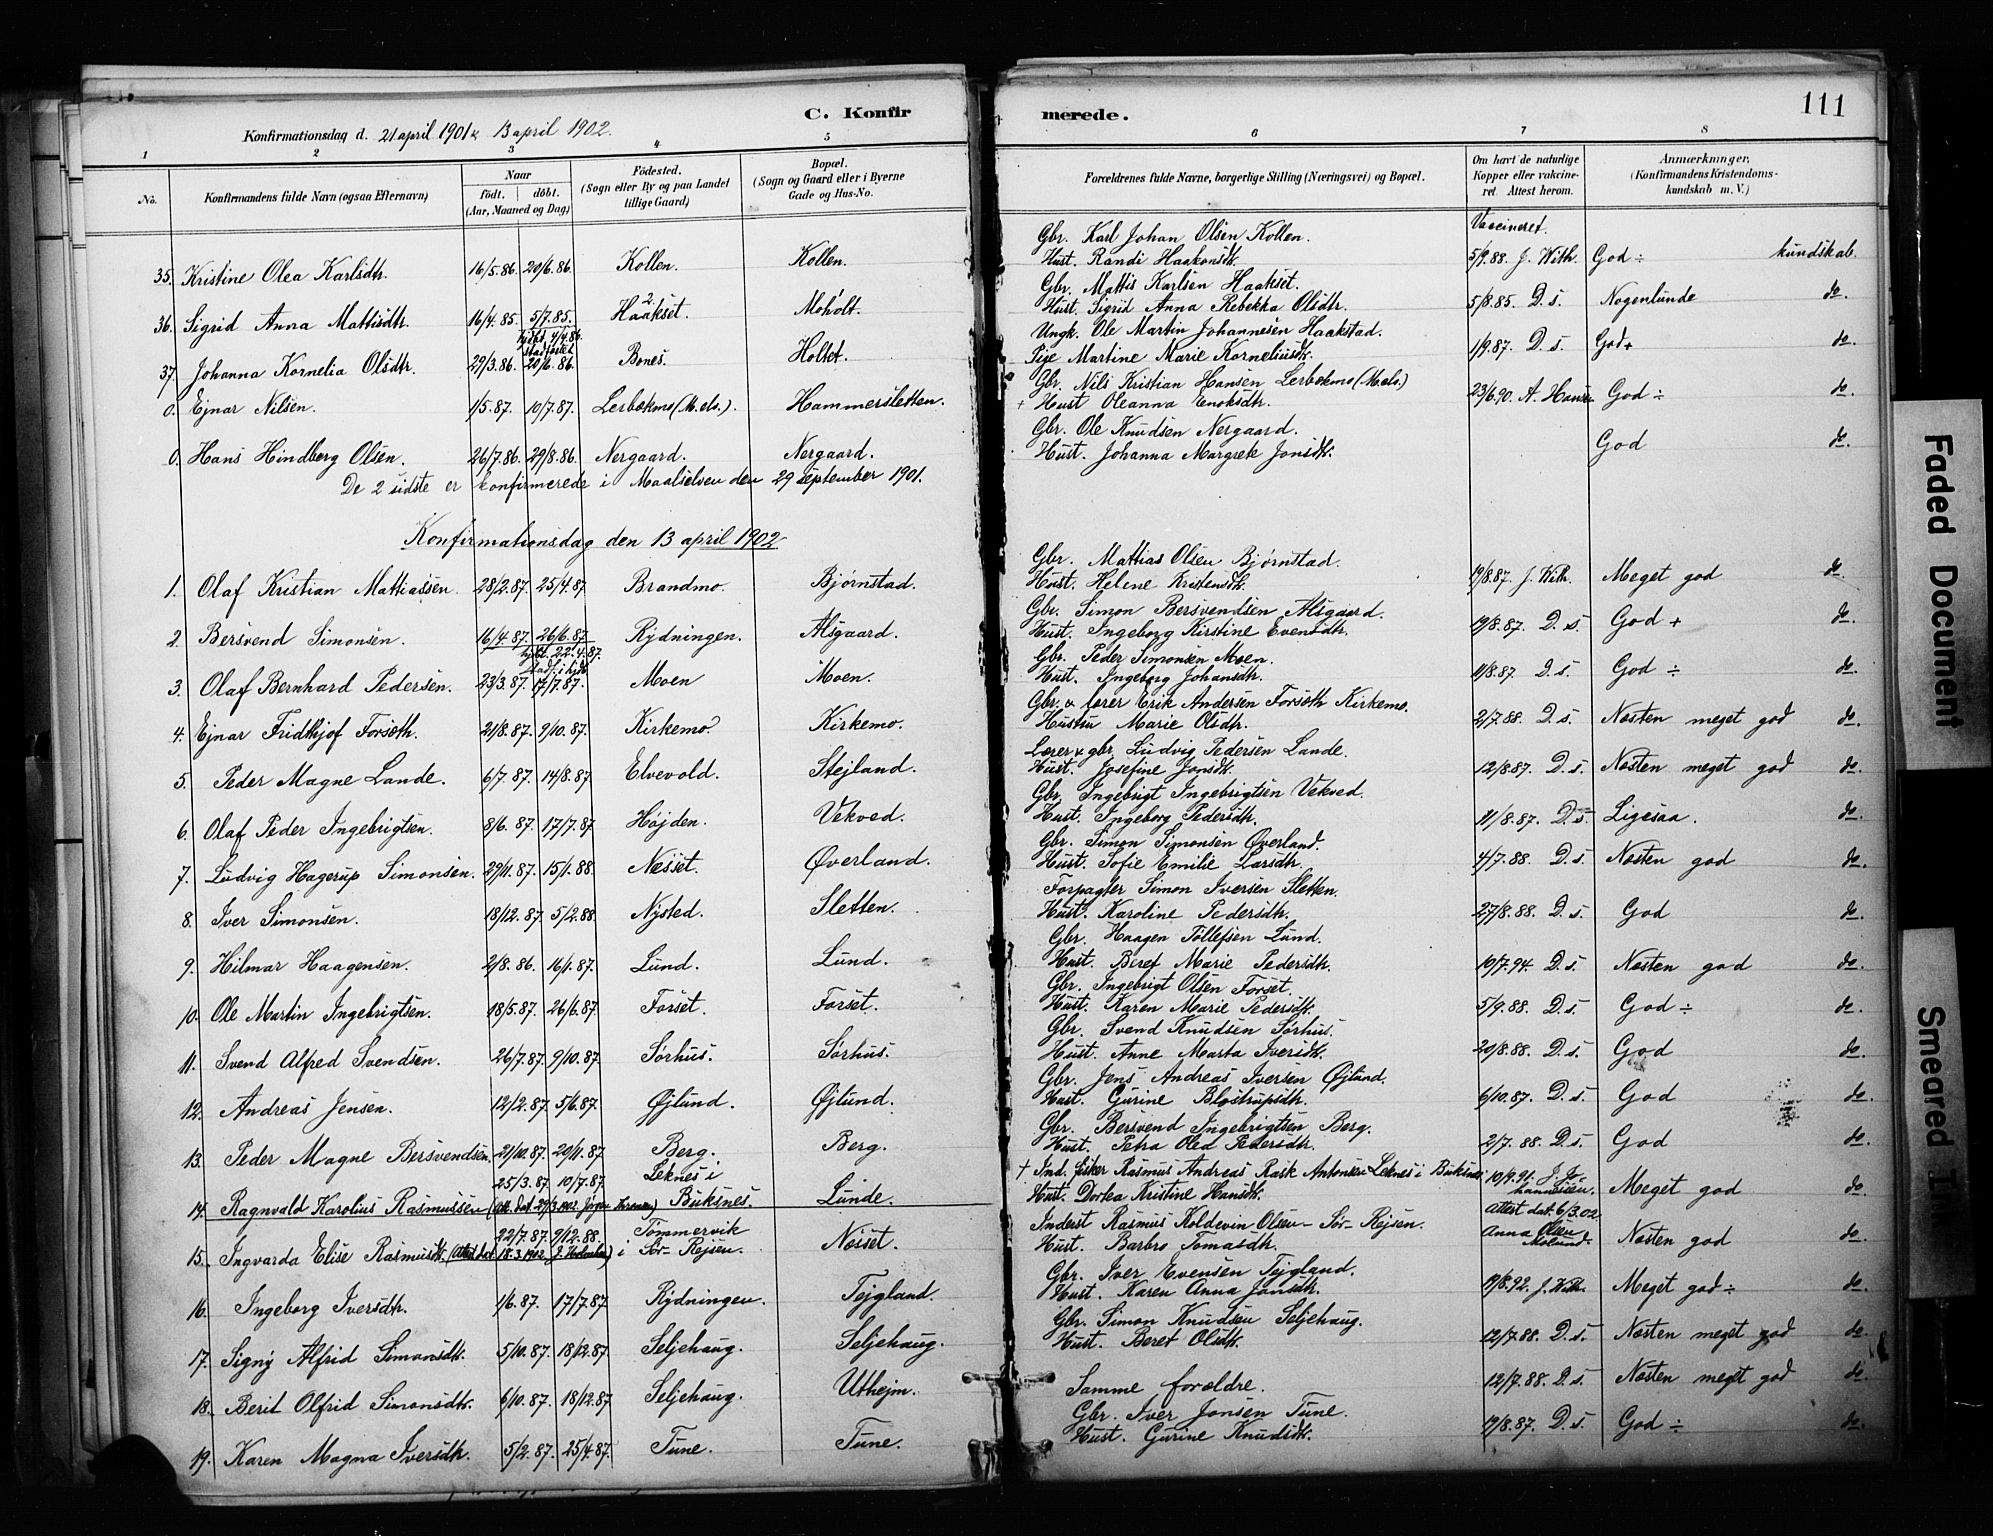 111
C. Konfirmerede.
Konfirmationsdag d. 21 april 1901 & 13 april 1902.
1 2 3 4 5 6 7 8
No.
Konfirmandens fulde Navn (ogsaa Efternavn)
Naar
födt. döbt.
(Aar, Maaned og Dag)
Födested.
(Sogn eller By og paa Landet
tillige Gaard)
Bopæl.
(Sogn og Gaard eller i Byerne
Gade og Hus-No.
Forældrenes fulde Navne, borgerlige Stilling (Næringsvei) og Bopæl.
Om havt de naturlige
Kopper eller vaccine-
ret Attest herom.
Anmærkninger.
(Konfirmandens Kristendoms-
kundskab m. V.)
Vaccineret.
Gbr. Karl Johan Olsen Kollen.
35. Kristine Olea Karlsdtr. 16/5.86. 20/6.86. Kollen. Kollen. Hust. Randi Haakonsdtr. 5/9.88. J. With. God ÷ kundskab.
Gbr. Mattis Karlsen Haakset.
36. Sigrid Anna Mattisdtr. 16/4.85. 5/7.85. Haakset. Moholt. Hust. Sigrid Anna Rebekka Olsdtr. 5/8.85. D. s. Nogenlunde do.
hjdbt. 4/4.86. stadfæstet
Ungk. Ole Martin Johannesen Haakstad.
37. Johanna Kornelia Olsdtr. 29/3.86. 20/6.86. Bones. Holtet. Pige Martine Marie Korneliusdtr. 1/9.87. D. s. God + do.
Gbr. Nils Kristian Hansen Lerbækmo (M.elv.)
0. Ejnar Nilsen. 1/5.87. 10/7.87. Lerbækmo (M.elv.). Hammersletten. + Hust Oleanna Enoksdtr. 23/6.90. A. Hansen God ÷ do.
Gbr. Ole Knudsen Nergaard.
0. Hans Hindberg Olsen. 26/7.86. 29/8.86. Nergaard. Nergaard. Hust. Johanna Margrete Jonsdtr. God do.
De 2 sidste er konfirmerede i Maalselven den 29 september 1901.
Konfirmationsdag den 13 april 1902
Gbr. Mathias Olsen Bjørnstad.
1. Olaf Kristian Mattiassen. 28/2.87. 25/4.87 Brandmo. Bjørnstad. Hust. Helene Kristensdtr. 19/8.87. J. With. Meget god do.
Gbr. Simon Bersvendsen Alsgaard.
2. Bersvend Simonsen. 16/4.87. 26/6.87 Rydningen. Alsgaard. Hust. Ingeborg Kirstine Evensdtr. 19/8.87. D. s. God + do.
hjdbt. 22.4.87.
Gbr. Peder Simonsen Moen.
3. Olaf Bernhard Pedersen. 23/3.87. 17/7.87. Moen Moen. Hust. Ingeborg Johansdtr. 11/8.87. D. s. God ÷ do.
Gbr. & lærer Erik Andersen Forsøth Kirkemo.
4. Ejnar Fridthjof Forsøth. 21/8.87. 9/10.87. Kirkemo. Kirkemo. Hustru Marie Olsdtr. 2/7.88. D. s. Næsten meget god do.
Lærer & gbr. Ludvig Pedersen Lande.
5. Peder Magne Lande. 6/7.87. 14/8.87 Elvevold. Stejland. Hust. Josefine Jonsdtr. 12/8.87. D. s. Næsten meget god do.
Gbr. Ingebrigt Ingebrigtsen Vekved.
6. Olaf Peder Ingebrigtsen. 8/6.87. 17/7.87 Højden. Vekved. Hust. Ingeborg Pedersdtr. 11/8.87. D. s. Ligesaa. do.
Gbr. Simon Simonsen Øverland.
7. Ludvig Hagerup Simonsen. 29/11.87. 15/1.88. Nesset. Øverland. Hust. Sofie Emilie Larsdtr. 4/7.88. D. s. Næsten god do.
Forpagter Simon Iversen Sletten.
8. Iver Simonsen. 18/12.87. 5/2.88. Nysted. Sletten. Hust. Karoline Pedersdtr. 27/8.88. D. s. God do.
Gbr. Haagen Tollefsen Lund.
9. Hilmar Haagensen. 2/8.86. 16/1.87. Lund. Lund. Hust. Beret Marie Pedersdtr. 10/7.94. D. s. Næsten god do.
Gbr. Ingebrigt Olsen Forset.
10. Ole Martin Ingebrigtsen. 18/5.87. 26/6.87. Forset. Forset. Hust. Karen Marie Pedersdtr. 5/9.88. D. s. God ÷ do.
Gbr. Svend Knudsen Sørhus.
11. Svend Alfred Svendsen. 26/7.87. 9/10.87. Sørhus. Sørhus. Hust. Anne Marta Iversdtr. 20/8.88. D. s. God do.
Gbr. Jens Andreas Iversen Øjlund.
12. Andreas Jensen. 12/2.87. 5/6.87. Øjlund. Øjlund. Hust. Gurine Blostrupsdtr. 6/10.87. D. s. God do.
Gbr. Bersvend Ingebrigtsen Berg.
13. Peder Magne Bersvendsen. 21/10.87. 20/11.87. Berg. Berg. Hust. Petra Olea Pedersdtr. 2/7.88. D. s. God do.
+ Ind. fisker Rasmus Andreas Rask Antonsen Leknes i Buksnes
25/3.87. 10/7.87. Leknes i
14. Ragnvald Karolius Rasmussen (Att. dat. 29/3.1902. Jørgen) Buksnes. Lunde. Hust. Dortea Kristine Hansdtr. 10/9.91. J. Johannesen. Meget god do.
Attest dat. 6/3.02.
22/7.87. 9/12.88. Tømmervik
Inderst Rasmus Koldevin Olsen - Sør-Rejsen.
15. Ingvarda Elise Rasmusdtr. (Attest dat. 18.3.1902.) i Sør-Rejsen. Nesset. Hust. Barbro Tomasdtr. Anna Olsen Næsten god do.
Gbr. Iver Evensen Tejgland.
16. Ingeborg Iversdtr. 1/6.87. 17/7.87 Rydningen. Tejgland. Hust. Karen Anna Jonsdtr. 19/8.92. J. With. Meget god ÷ do.
Gbr. Simon Knudsen Seljehaug.
17. Signy Alfrid Simonsdtr. 5/10.87. 18/12.87. Seljehaug. Seljehaug. Hust. Beret Olsdtr. 12/7.88. D. s. Næsten meget god do.
18. Berit Olfrid Simonsdtr. 6/10.87. 18/12.87 Seljehaug. Uthejm. Samme forældre. 12/7.88. D. s. Næsten meget god do.
Gbr. Iver Jonsen Tune.
19. Karen Magna Iversdtr. 5/2.87. 25/4.87. Tune. Tune. Hust. Gurine Knudsdtr. 19/8.87. D. s. God ÷ do.
Faded Document
Smeared I